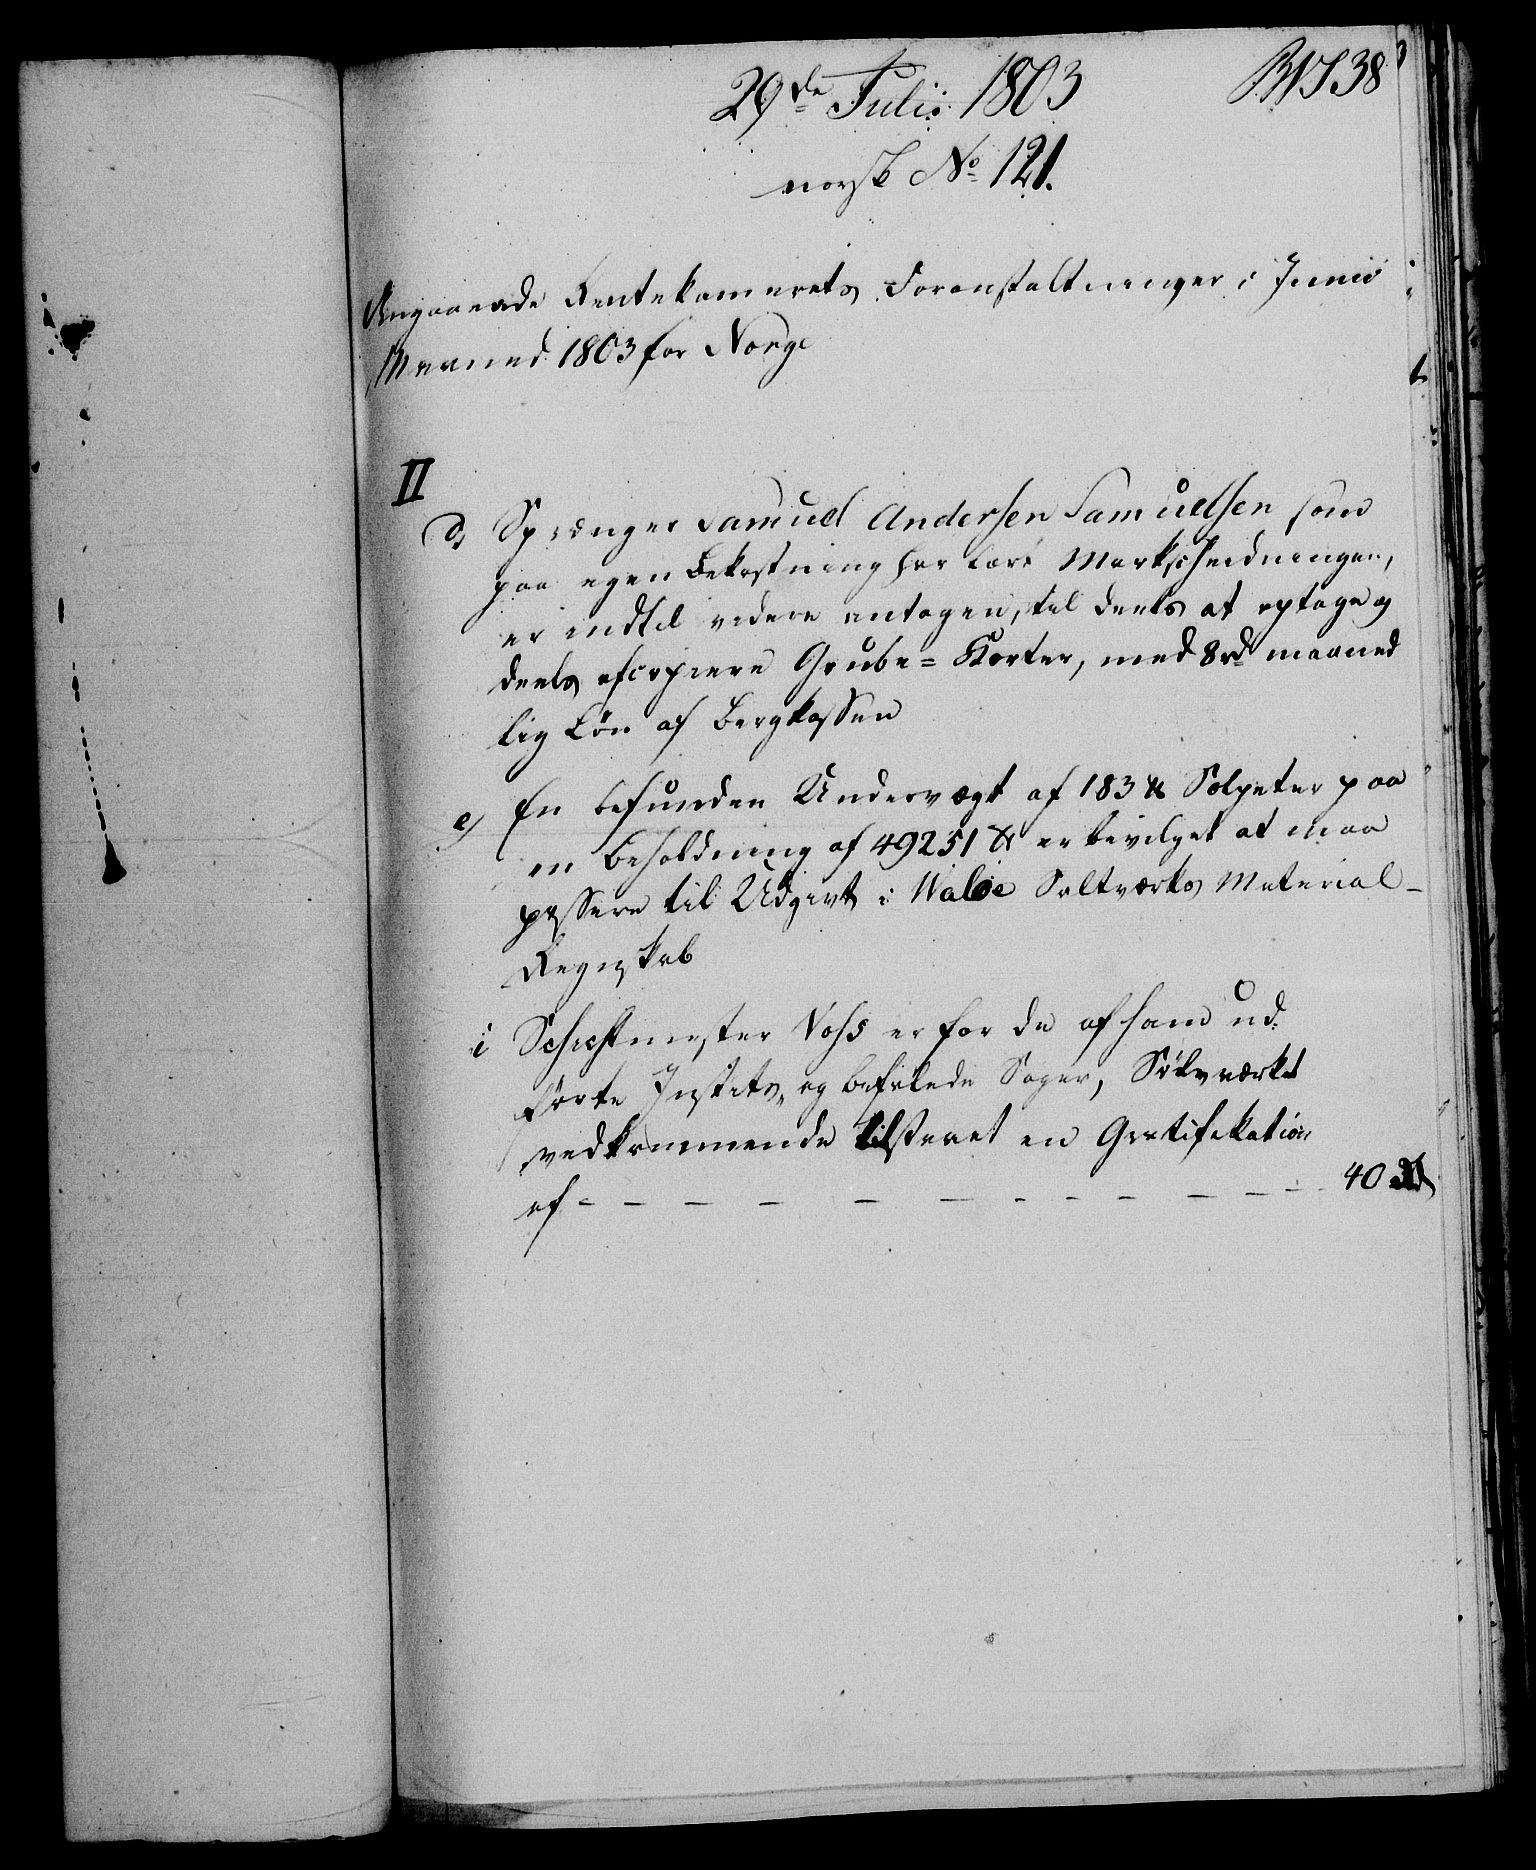 29de Julii 1803
norsk No 121.
Angaaende Rentekamerets Foranstaltninger i Junii
Maaned 1803 for Norge
II
d, Sprænger Samuel Andersen Samuelsen som
paa egen Bekostning har lært Markscheidningen,
er indtil videre antagen, til deels at optage og
deels afcopiere Grube= Karter, med 8 rd maaned
lig Løn af Bergkassen
e) En befunden Undervægt af 183 ℔ Salpeter paa
en beholdning af 49251 ℔ er bevilget at maa
passere til Udgivt i Waløe Saltværks Material-
Regnskab
i Schichtmester Vohs er for de af ham ud
førte Justits, og befalede Sager, Sølvværket
vedkommende tilstaaet en Gratifikation
af - - - - - - - - - - - - 40 rd